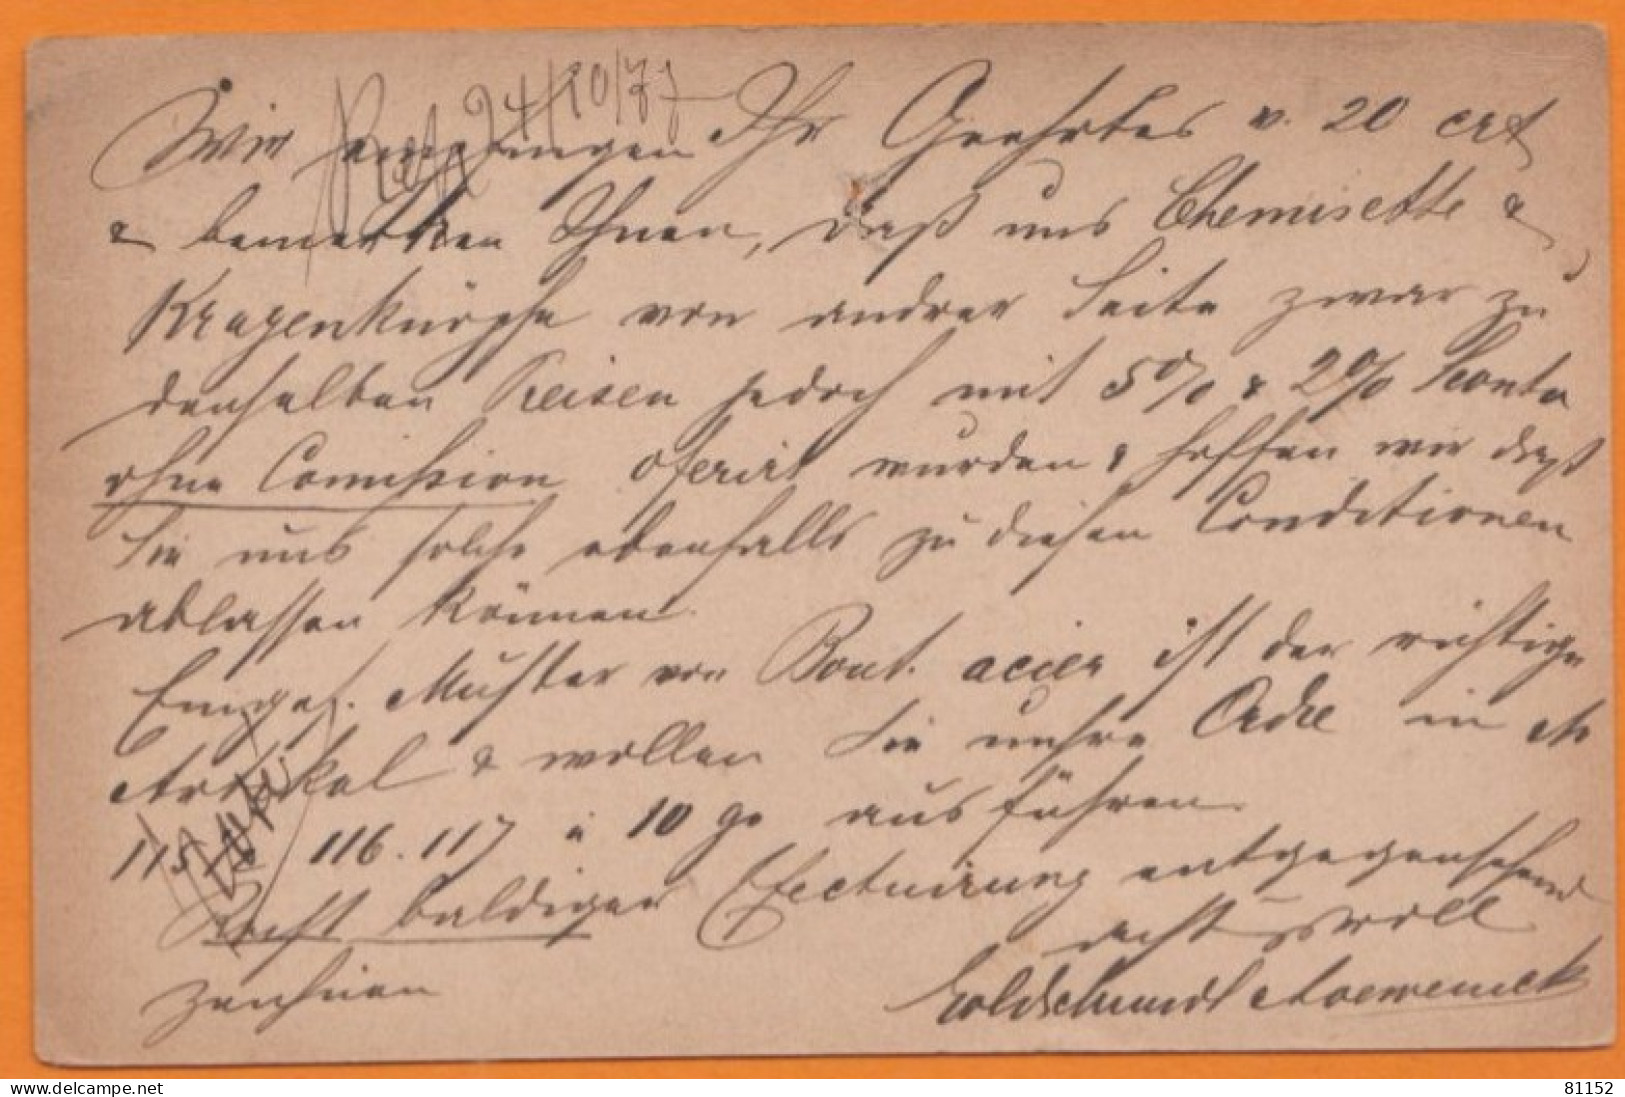 24/10/77
Wir empfingen Ihr Geehrtes v. 20 crt
& bemerken Ihnen, daß uns Chemisette &
Kragenknöpfe von andrer Seite zwar zu
denselben Preisen jedoch mit 5% & 2% Sconto
ohne Comission oferirt wurden & hoffen wir daß
Sie uns solche ebenfalls zu diesen Conditionen
ablassen können.
Einges. Muster von Bout. acier ist der richtige
Artikel & wollen Sie unsre Ordre in No
115 116. 117 à 10 gr ausführen.
Recht baldiger Efectuirung entgegensehend
zeichnen achtungsvoll
Goldschmidt & Loewenick
81152